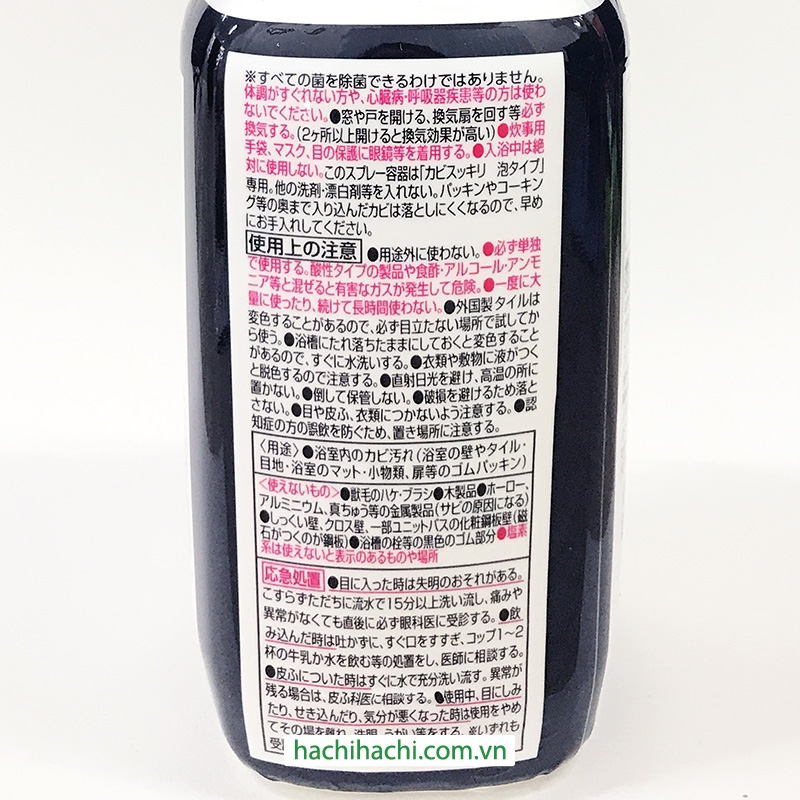 ※すべての菌を除菌できるわけではありません。
体調がすぐれない方や、心臓病・呼吸器疾患等の方は使わ
ないでください。●窓や戸を開ける、換気扇を回す等必ず
換気する。(2ヶ所以上開けると換気効果が高い)●炊事用
手袋、マスク、目の保護に眼鏡等を着用する。●入浴中は絶
対に使用しない。このスプレー容器は「カビスッキリ 泡タイプ」
専用。他の洗剤・漂白剤等を入れない。パッキンやコーキン
グ等の奥まで入り込んだカビは落としにくくなるので、早め
にお手入れしてください。
使用上の注意 ●用途外に使わない。●必ず単独
で使用する。酸性タイプの製品や食酢・アルコール・アンモ
ニア等と混ぜると有害なガスが発生して危険。●一度に大
量に使ったり、続けて長時間使わない。●外国製タイルは
変色することがあるので、必ず目立たない場所で試してか
ら使う。●浴槽にたれ落ちたままにしておくと変色すること
があるので、すぐに水洗いする。●衣類や敷物に液がつく
と脱色するので注意する。●直射日光を避け、高温の所に
置かない。●倒して保管しない。●破損を避けるため落と
さない。●目や皮ふ、衣類につかないよう注意する。●認
知症の方の誤飲を防ぐため、置き場所に注意する。
〈用途〉●浴室内のカビ汚れ(浴室の壁やタイル・
目地・浴室のマット・小物類、扉等のゴムパッキン)
〈使えないもの〉●獣毛のハケ・ブラシ●木製品●ホーロー、
アルミニウム、真ちゅう等の金属製品(サビの原因になる)
●しっくい壁、クロス壁、一部ユニットバスの化粧鋼板壁(磁
石がつくのが鋼板)●浴槽の栓等の黒色のゴム部分●塩素
系は使えないと表示のあるものや場所
応急処置 ●目に入った時は失明のおそれがある。
こすらずただちに流水で15分以上洗い流し、痛みや
異常がなくても直後に必ず眼科医に受診する。●飲
み込んだ時は吐かずに、すぐ口をすすぎ、コップ1〜2
杯の牛乳か水を飲む等の処置をし、医師に相談する。
●皮ふについた時はすぐに水で充分洗い流す。異常が
残る場合は、皮ふ科医に相談する。●使用中、目にしみ
たり、せき込んだり、気分が悪くなった時は使用をやめ
てその場を離れ、洗眼、うがい等をする。※いずれも
受
hachihachi.com.vn